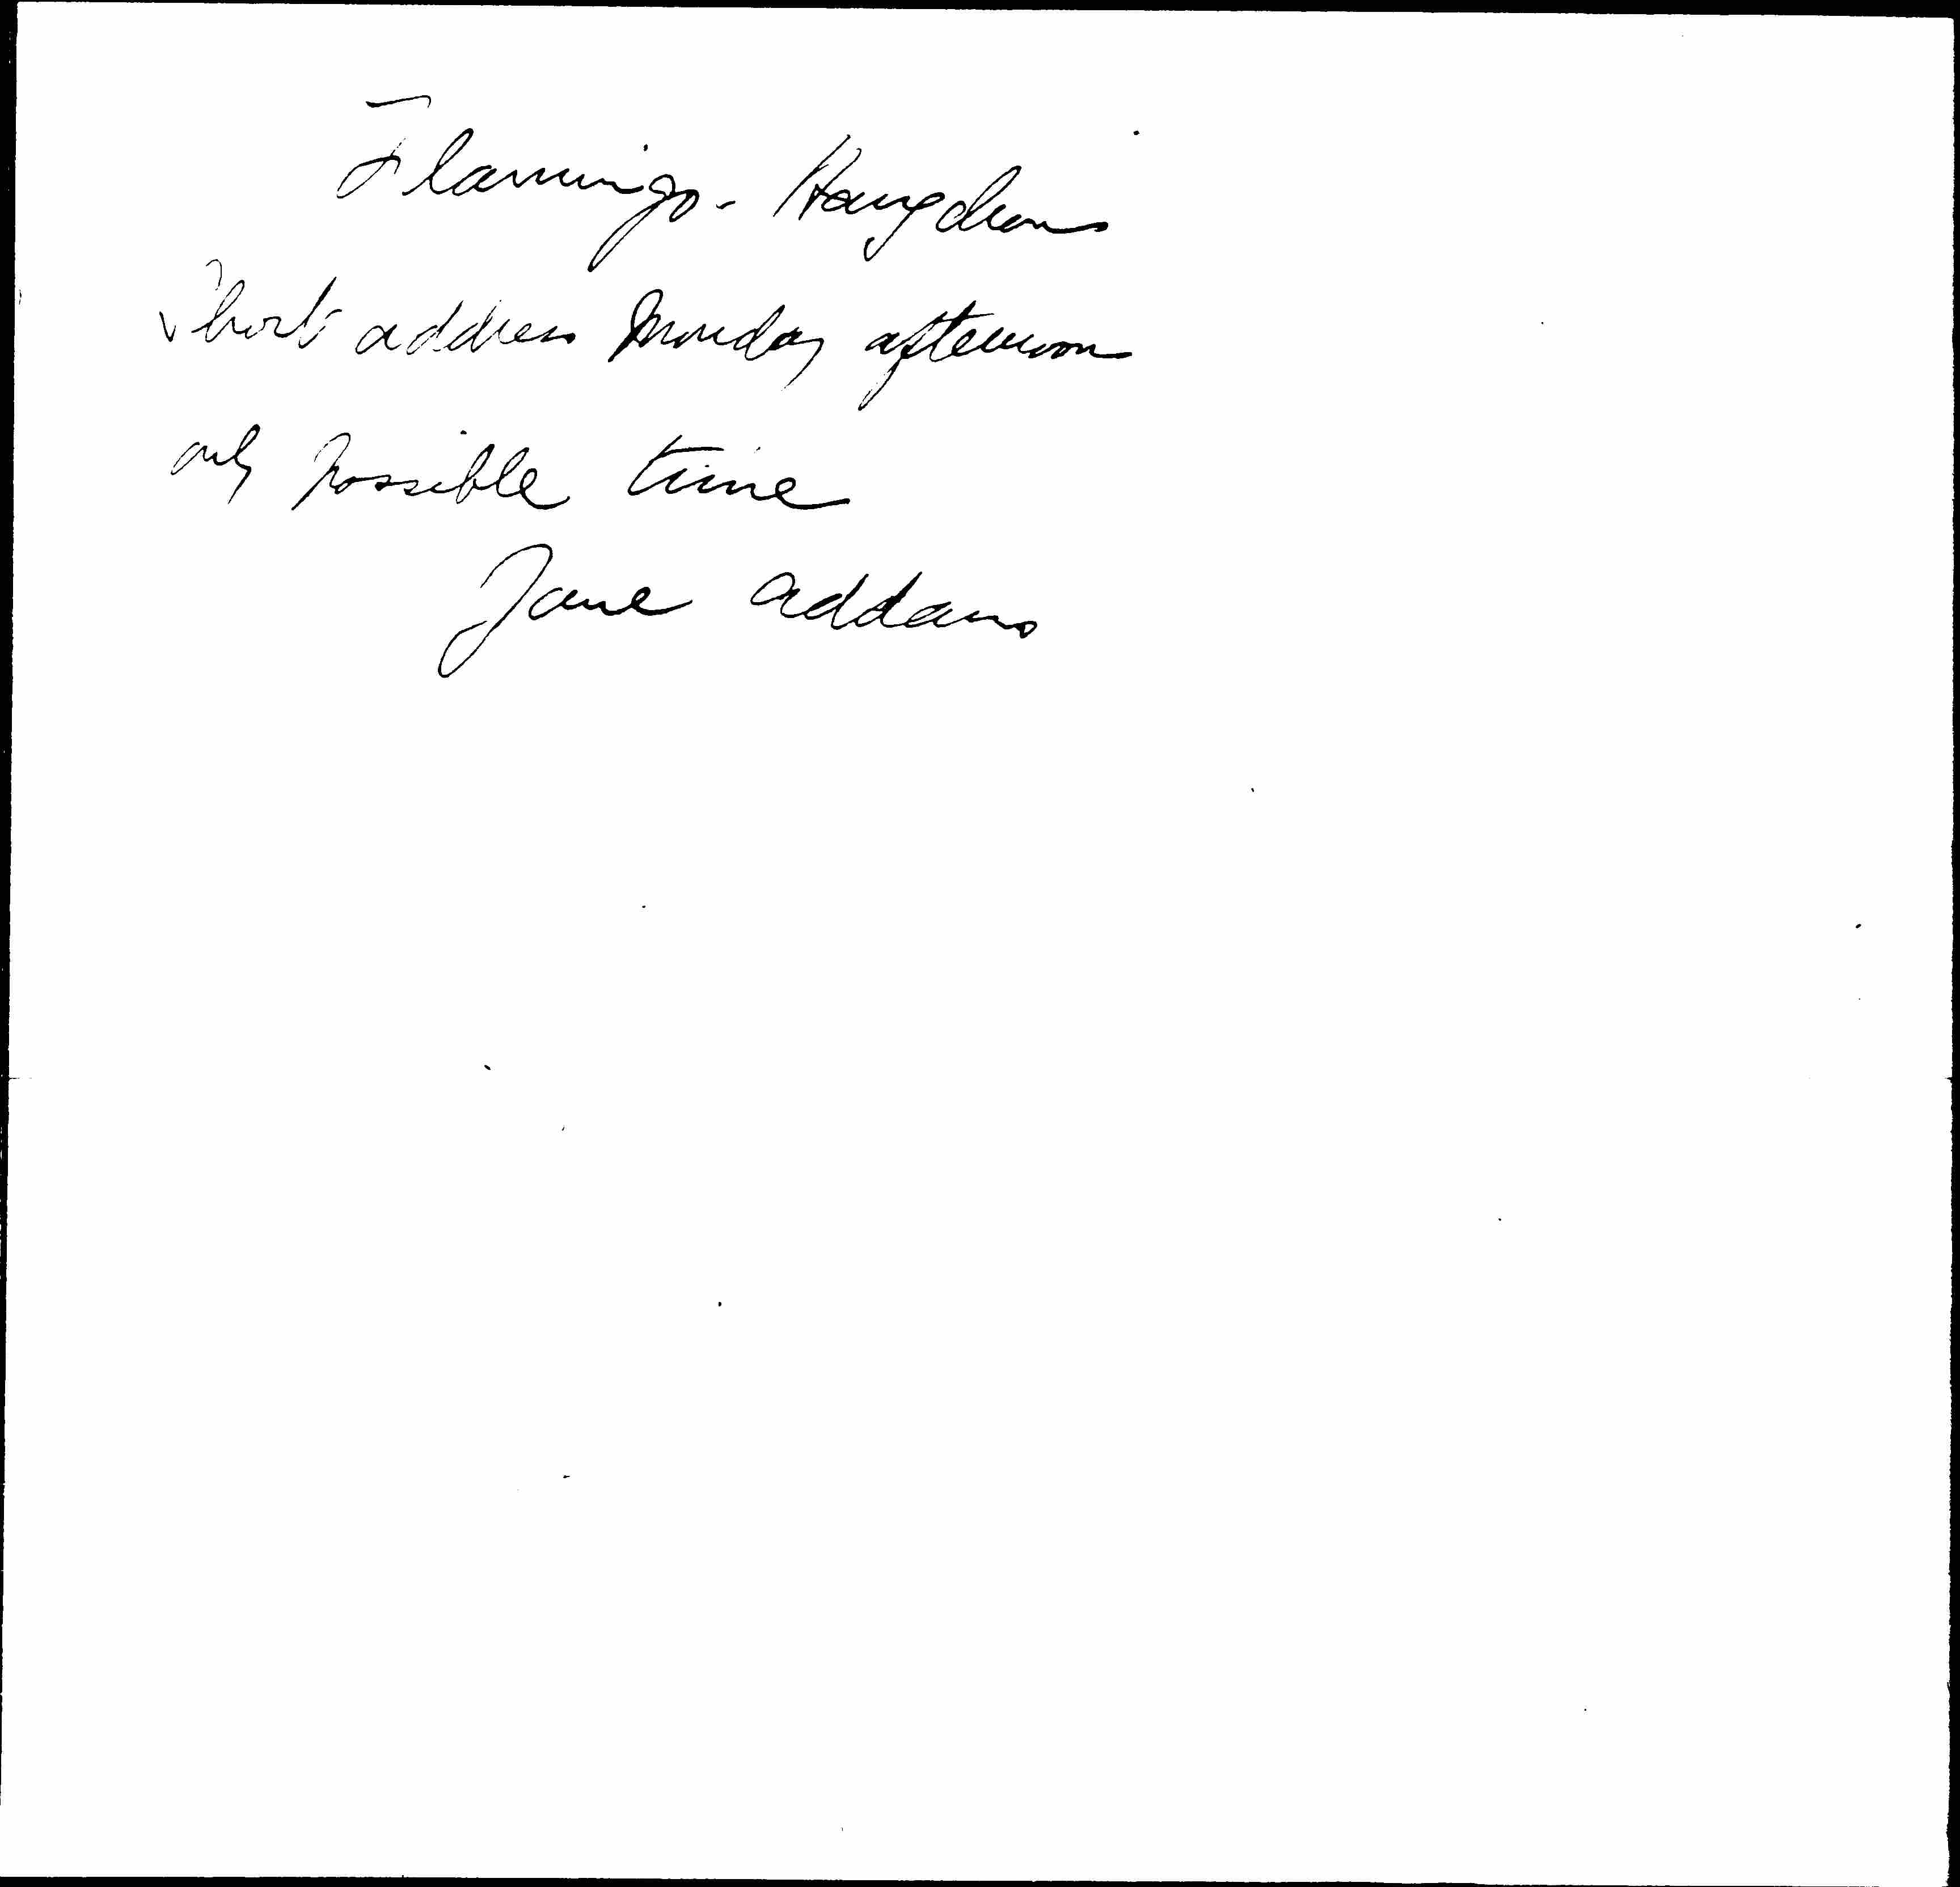 Flamingo-
Short address Monday afternoon
only possible time
Jane Addams